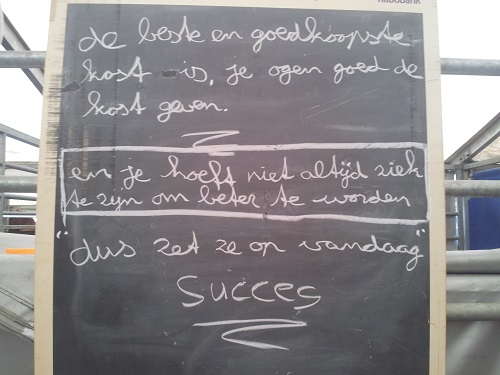 Rabobank
de beste en goedkoopste
kost is, je ogen goed de
kost geven.
en je hoeft niet altijd ziek
te zijn om beter te worden
"dus zet ze op vandaag"
Succes